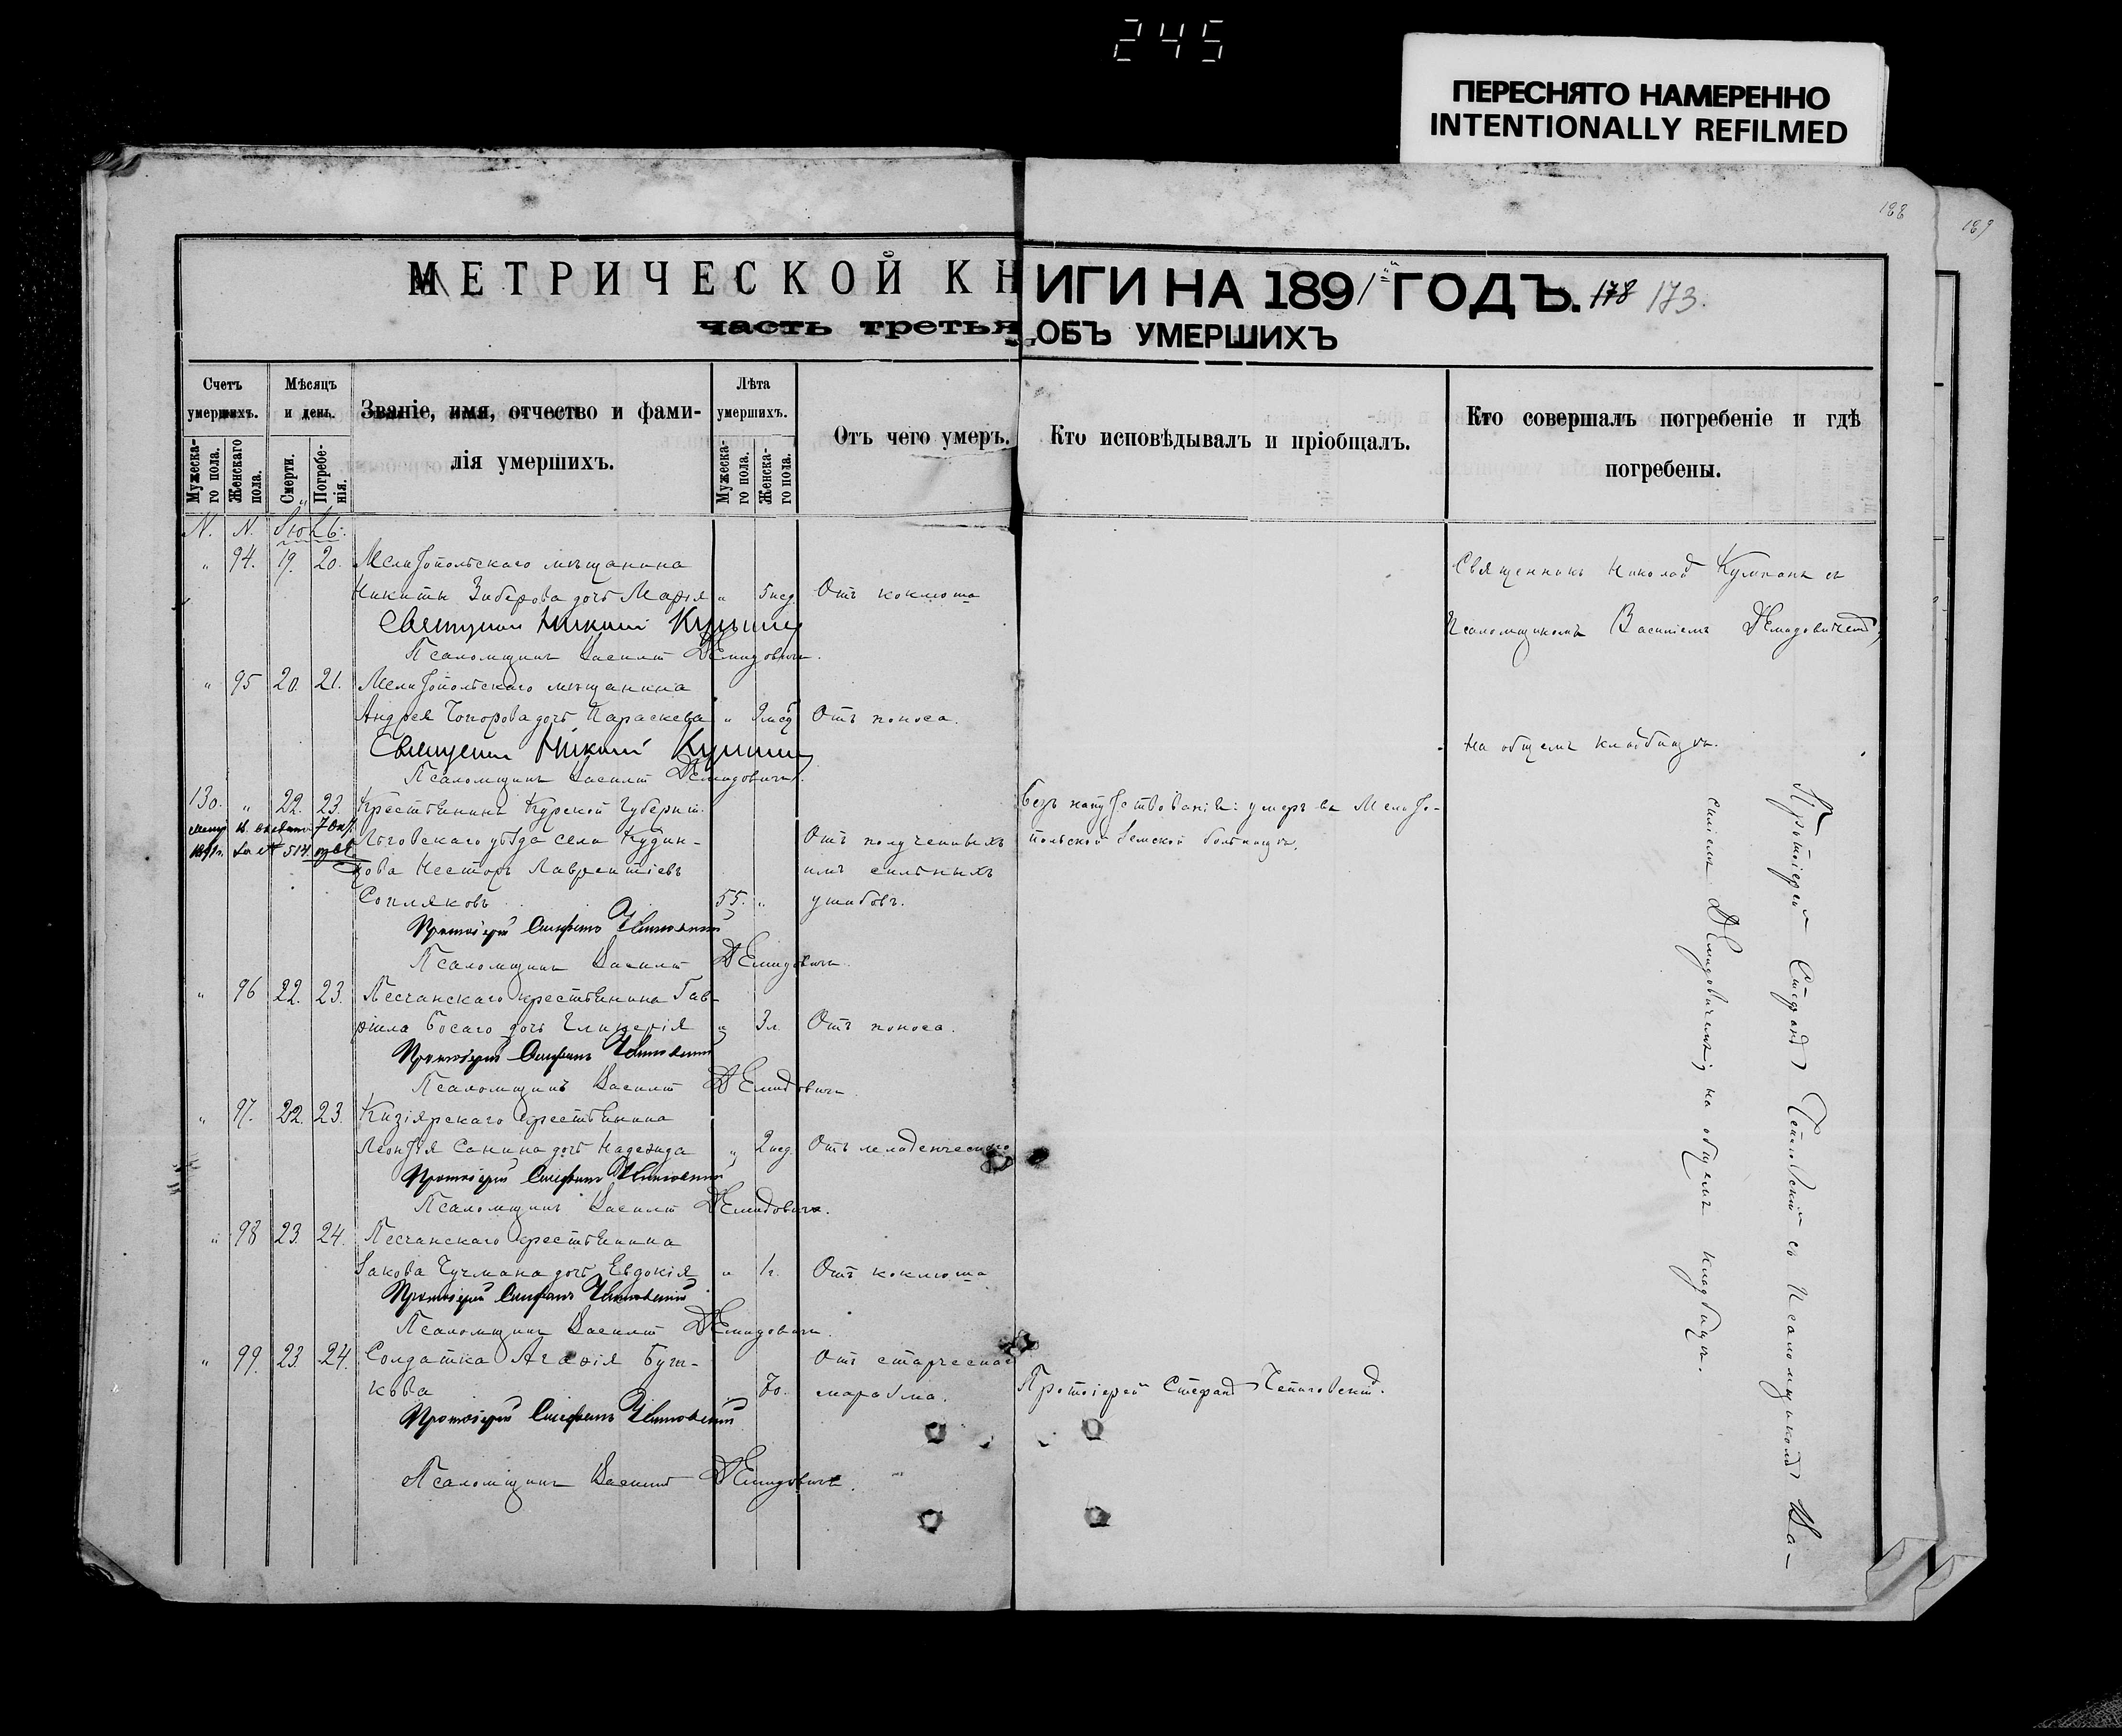 245
ПЕРЕСНЯТО НАМЕРЕННО
INTENTIONALLY REFILMED
188
189
МЕТРИЧЕСКОЙ КНИГИ НА 1891 ГОДЪ. 178 173.
часть третья, ОБЪ УМЕРШИХЪ
Счетъ умершихъ.
Мужеска-го пола.
Женскаго пола.
Мѣсяцъ и день.
Смерти.
Погребе-нія.
Званіе, имя, отчество и фами-
лія умершихъ.
Лѣта умершихъ.
Мужеска-го пола.
Женска-го пола.
Отъ чего умеръ.
Кто исповѣдывалъ и пріобщалъ.
Кто совершалъ погребеніе и гдѣ
погребены.
N. N. Іюль:
" 94. 19. 20. Мелитопольскаго мѣщанина
Никиты дочь Марія " 5 нед. Отъ коклюша
Священникъ Николай
Псаломщикъ Василій Демидовичъ.
Священникъ Николай съ
Псаломщикомъ Василіемъ Демидовичемъ,
" 95 20. 21. Мелитопольскаго мѣщанина
Андрея Топорова дочь Параскева " Отъ поноса.
Священникъ Николай
Псаломщикъ Василій Демидовичъ.
на общемъ кладбищѣ.
130. " 22. 23. Крестьянинъ Курской Губерніи
Льговскаго уѣзда села Кудин-
цова Несторъ Лаврентіевъ
Сопляковъ 55. " Отъ полученныхъ
имъ сильныхъ
ушибовъ.
Безъ напутствованія: умеръ въ Мелито-
польской Земской больницѣ.
Протоіерей Стефанъ
Псаломщикъ Василій Демидовичъ.
" 96 22. 23. Песчанскаго крестьянина Гав-
ріила Босаго дочь Гликерія " 3 л. Отъ поноса.
Протоіерей Стефанъ
Псаломщикъ Василій Демидовичъ.
" 97. 22. 23. Кизіярскаго крестьянина
Леонтія Санина дочь Надежда " 2 нед. Отъ младенческаго
Протоіерей Стефанъ
Псаломщикъ Василій Демидовичъ.
" 98 23. 24. Песчанскаго крестьянина
Іакова дочь Евдокія " 1 г. Отъ коклюша
Протоіерей Стефанъ
Псаломщикъ Василій Демидовичъ.
" 99. 23. 24. Солдатка Агафія
" 70. Отъ старческаго
маразма.
Протоіерей Стефанъ
Протоіерей Стефанъ
Псаломщикъ Василій Демидовичъ.
Протоіерей Стефанъ съ Псаломщикомъ Ва-
силіемъ Демидовичемъ, на общемъ кладбищѣ.